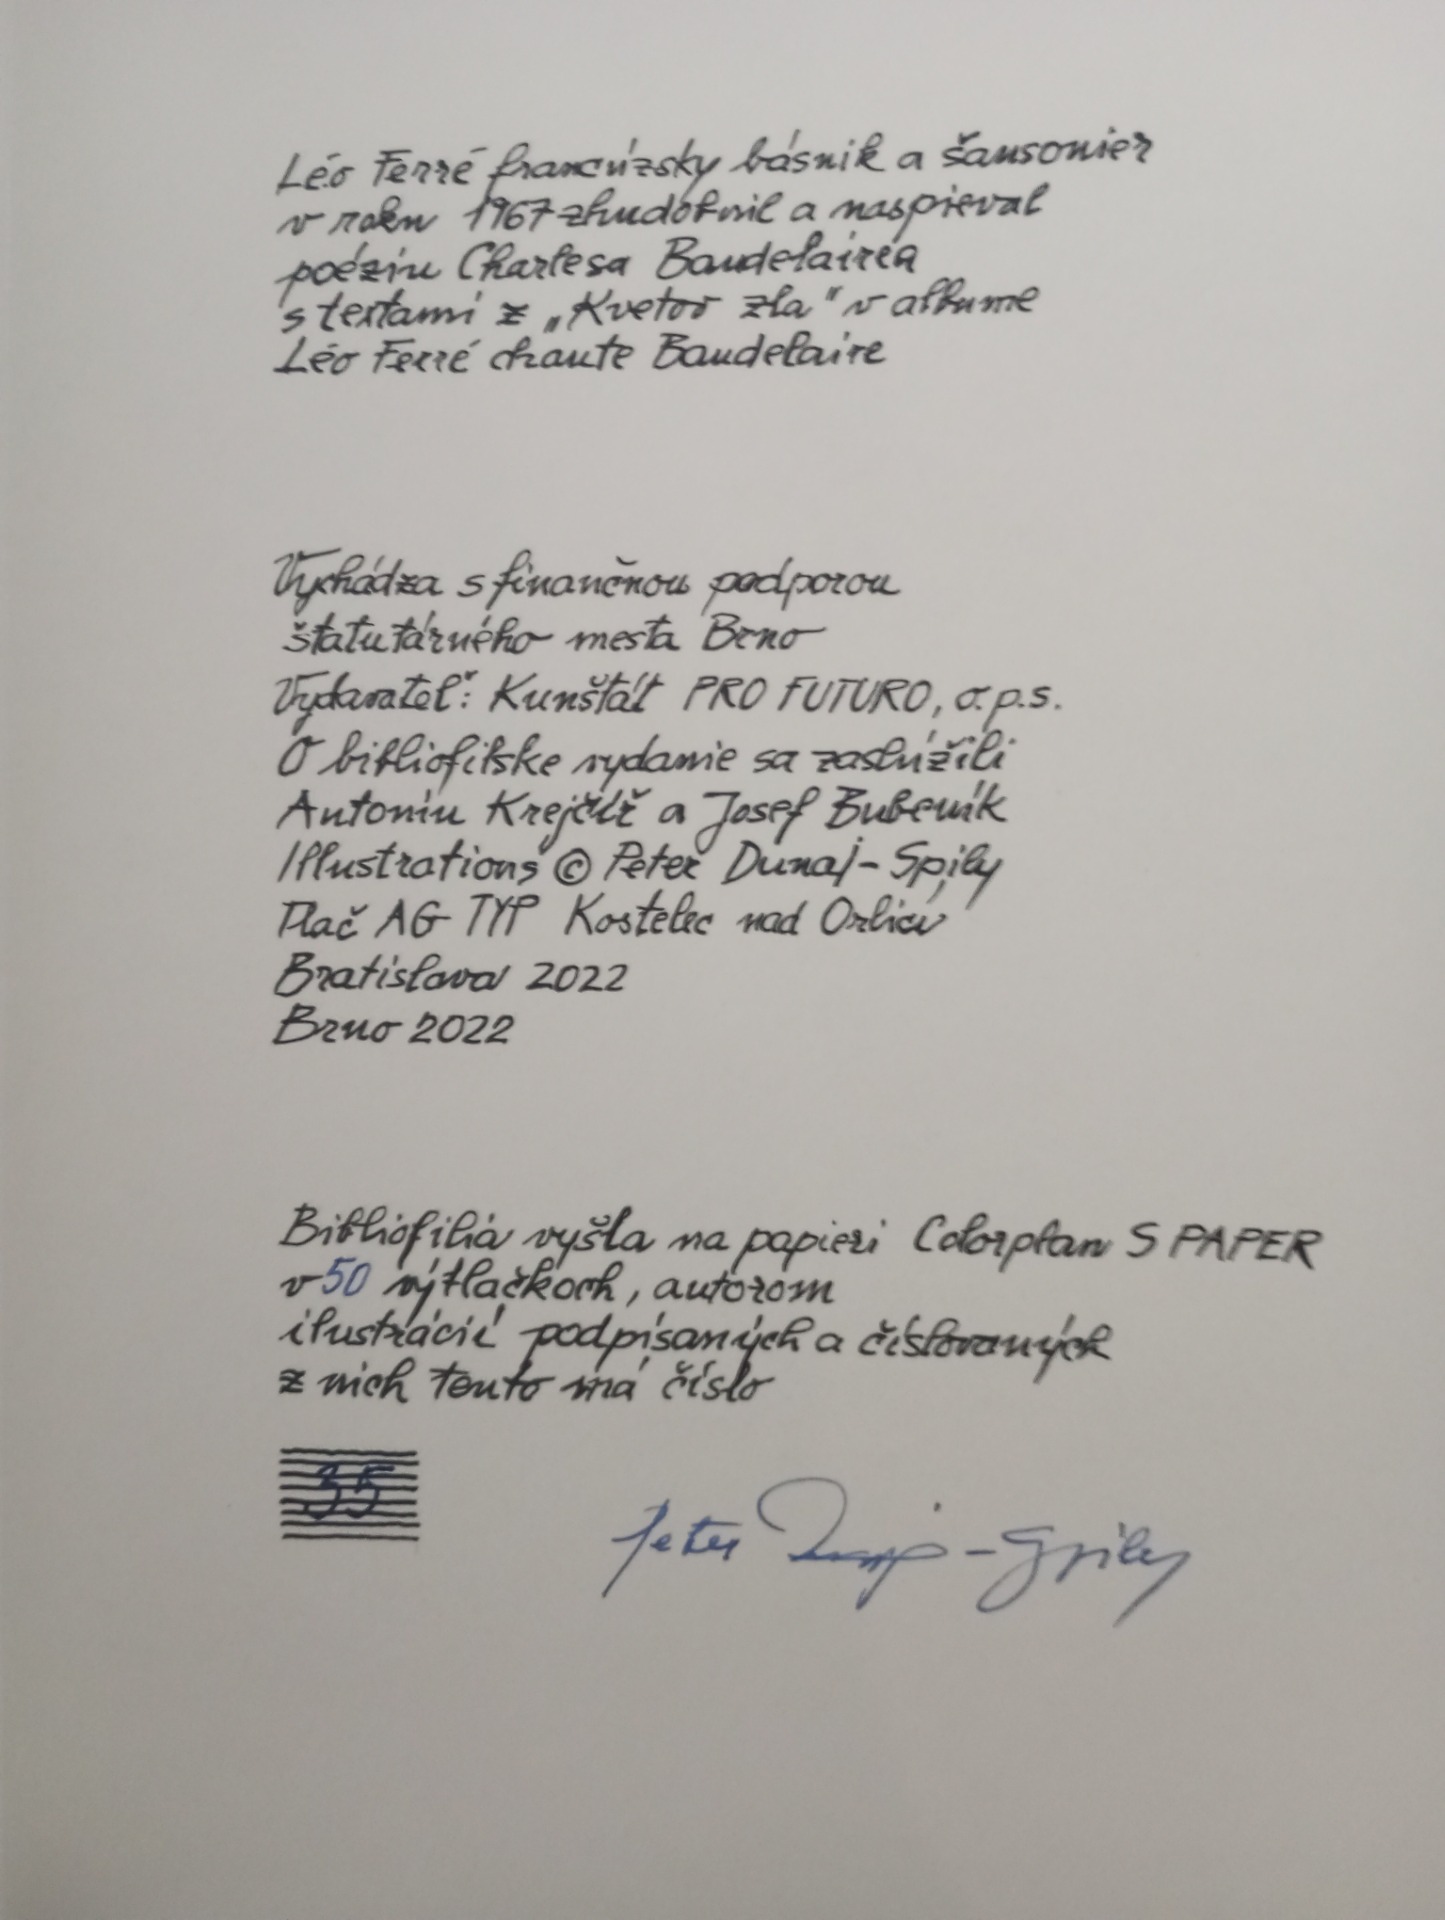 Léo Ferré francúzsky básnik a šansonier
v roku 1967 zhudobnil a naspieval
poéziu Charlesa Baudelairea
s textami z „Kvetov zla" v albume
Léo Ferré chante Baudelaire
Vychádza s finančnou podporou
štatutárného mesta Brno
Vydavateľ: Kunštát PRO FUTURO, o.p.s.
O bibliofilske vydanie sa zaslúžili
Antonín Krejčíř a Josef Bubeník
Illustrations © Peter Dunaj-Spily
Tlač AG TYP Kostelec nad Orlicí
Bratislava 2022
Brno 2022
Bibliofilia vyšla na papieri Colorplan S PAPER
v 50 výtlačkoch, autorom
ilustrácií podpísaných a číslovaných
z nich tento má číslo
35
Peter Dunaj-Spily